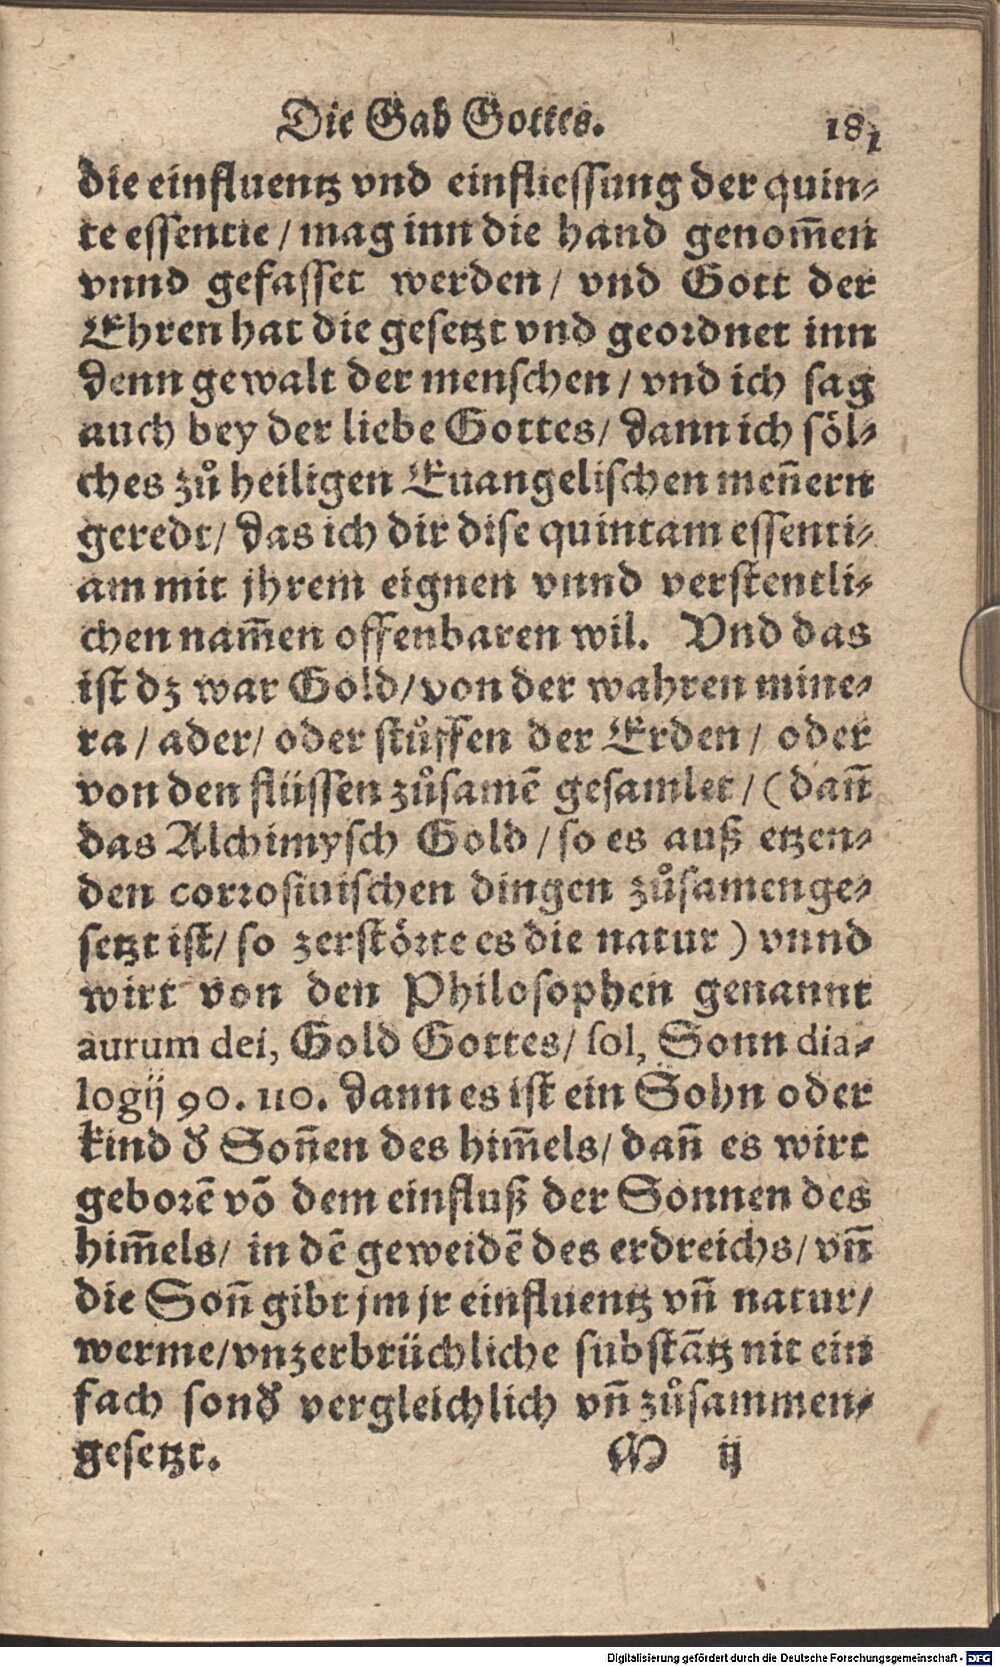 Die Gab Gottes. 181
die einfluentz vnd einfliessung der quin⸗
te essentie / mag inn die hand genom̃en
vnnd gefasset werden / vnd Gott der
Ehren hat die gesetzt vnd geordnet inn
denn gewalt der menschen / vnd ich sag
auch bey der liebe Gottes / dann ich söl⸗
ches zů heiligen Euangelischen men̄ern
geredt / das ich dir dise quintam essenti⸗
am mit jhrem eignen vnnd verstentli⸗
chen nam̃en offenbaren wil. Vnd das
ist dz war Gold / von der wahren mine⸗
ra / ader / oder stůffen der Erden / oder
von den flüssen zůsamē gesamlet / (dañ
das Alchimysch Gold / so es auß etzen⸗
den corrosiuischen dingen zůsamenge⸗
setzt ist / so zerstörte es die natur ) vnnd
wirt von den Philosophen genannt
aurum dei, Gold Gottes / sol, Sonn dia⸗
logij 90. 110. dann es ist ein Sohn oder
kind d̕ Soñen des him̃els / dañ es wirt
geborē vō dem einfluß der Sonnen des
him̃els / in dē geweidē des erdreichs / vñ
die Soñ gibt jm jr einfluentz vñ natur /
werme / vnzerbrüchliche substātz nit ein
fach sond̕ vergleichlich vñ zůsammen⸗
gesetzt. M ij
Digitalisierung gefördert durch die Deutsche Forschungsgemeinschaft - DFG